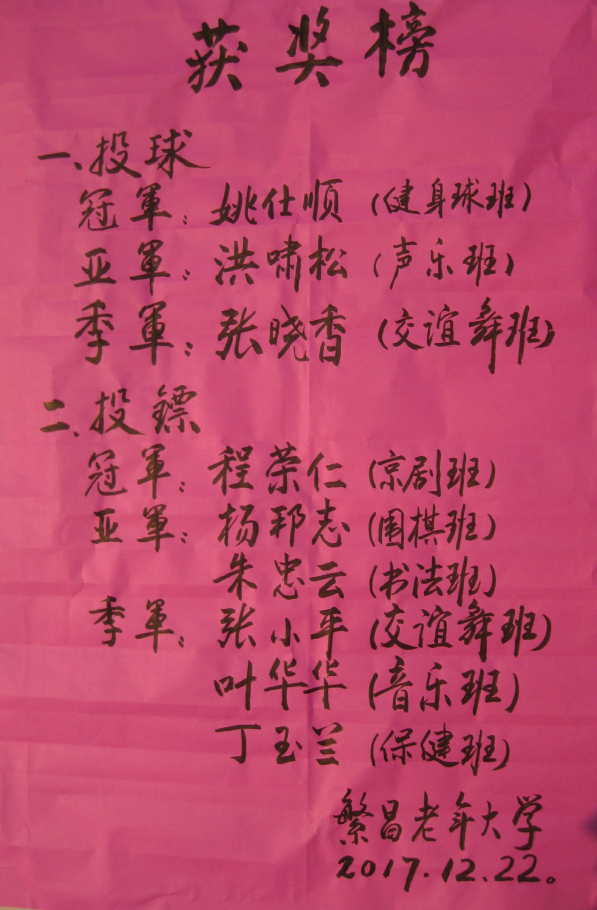 获奖榜
一、投球
冠軍：姚仕顺（健身球班）
亚軍：洪啸松（声乐班）
季軍：张晓香（交谊舞班）
二、投镖
冠軍：程荣仁（京剧班）
亚軍：杨邦志（围棋班）
朱忠云（书法班）
季軍：张小平（交谊舞班）
叶华华（音乐班）
丁玉兰（保健班）
繁昌老年大学
2017.12.22。